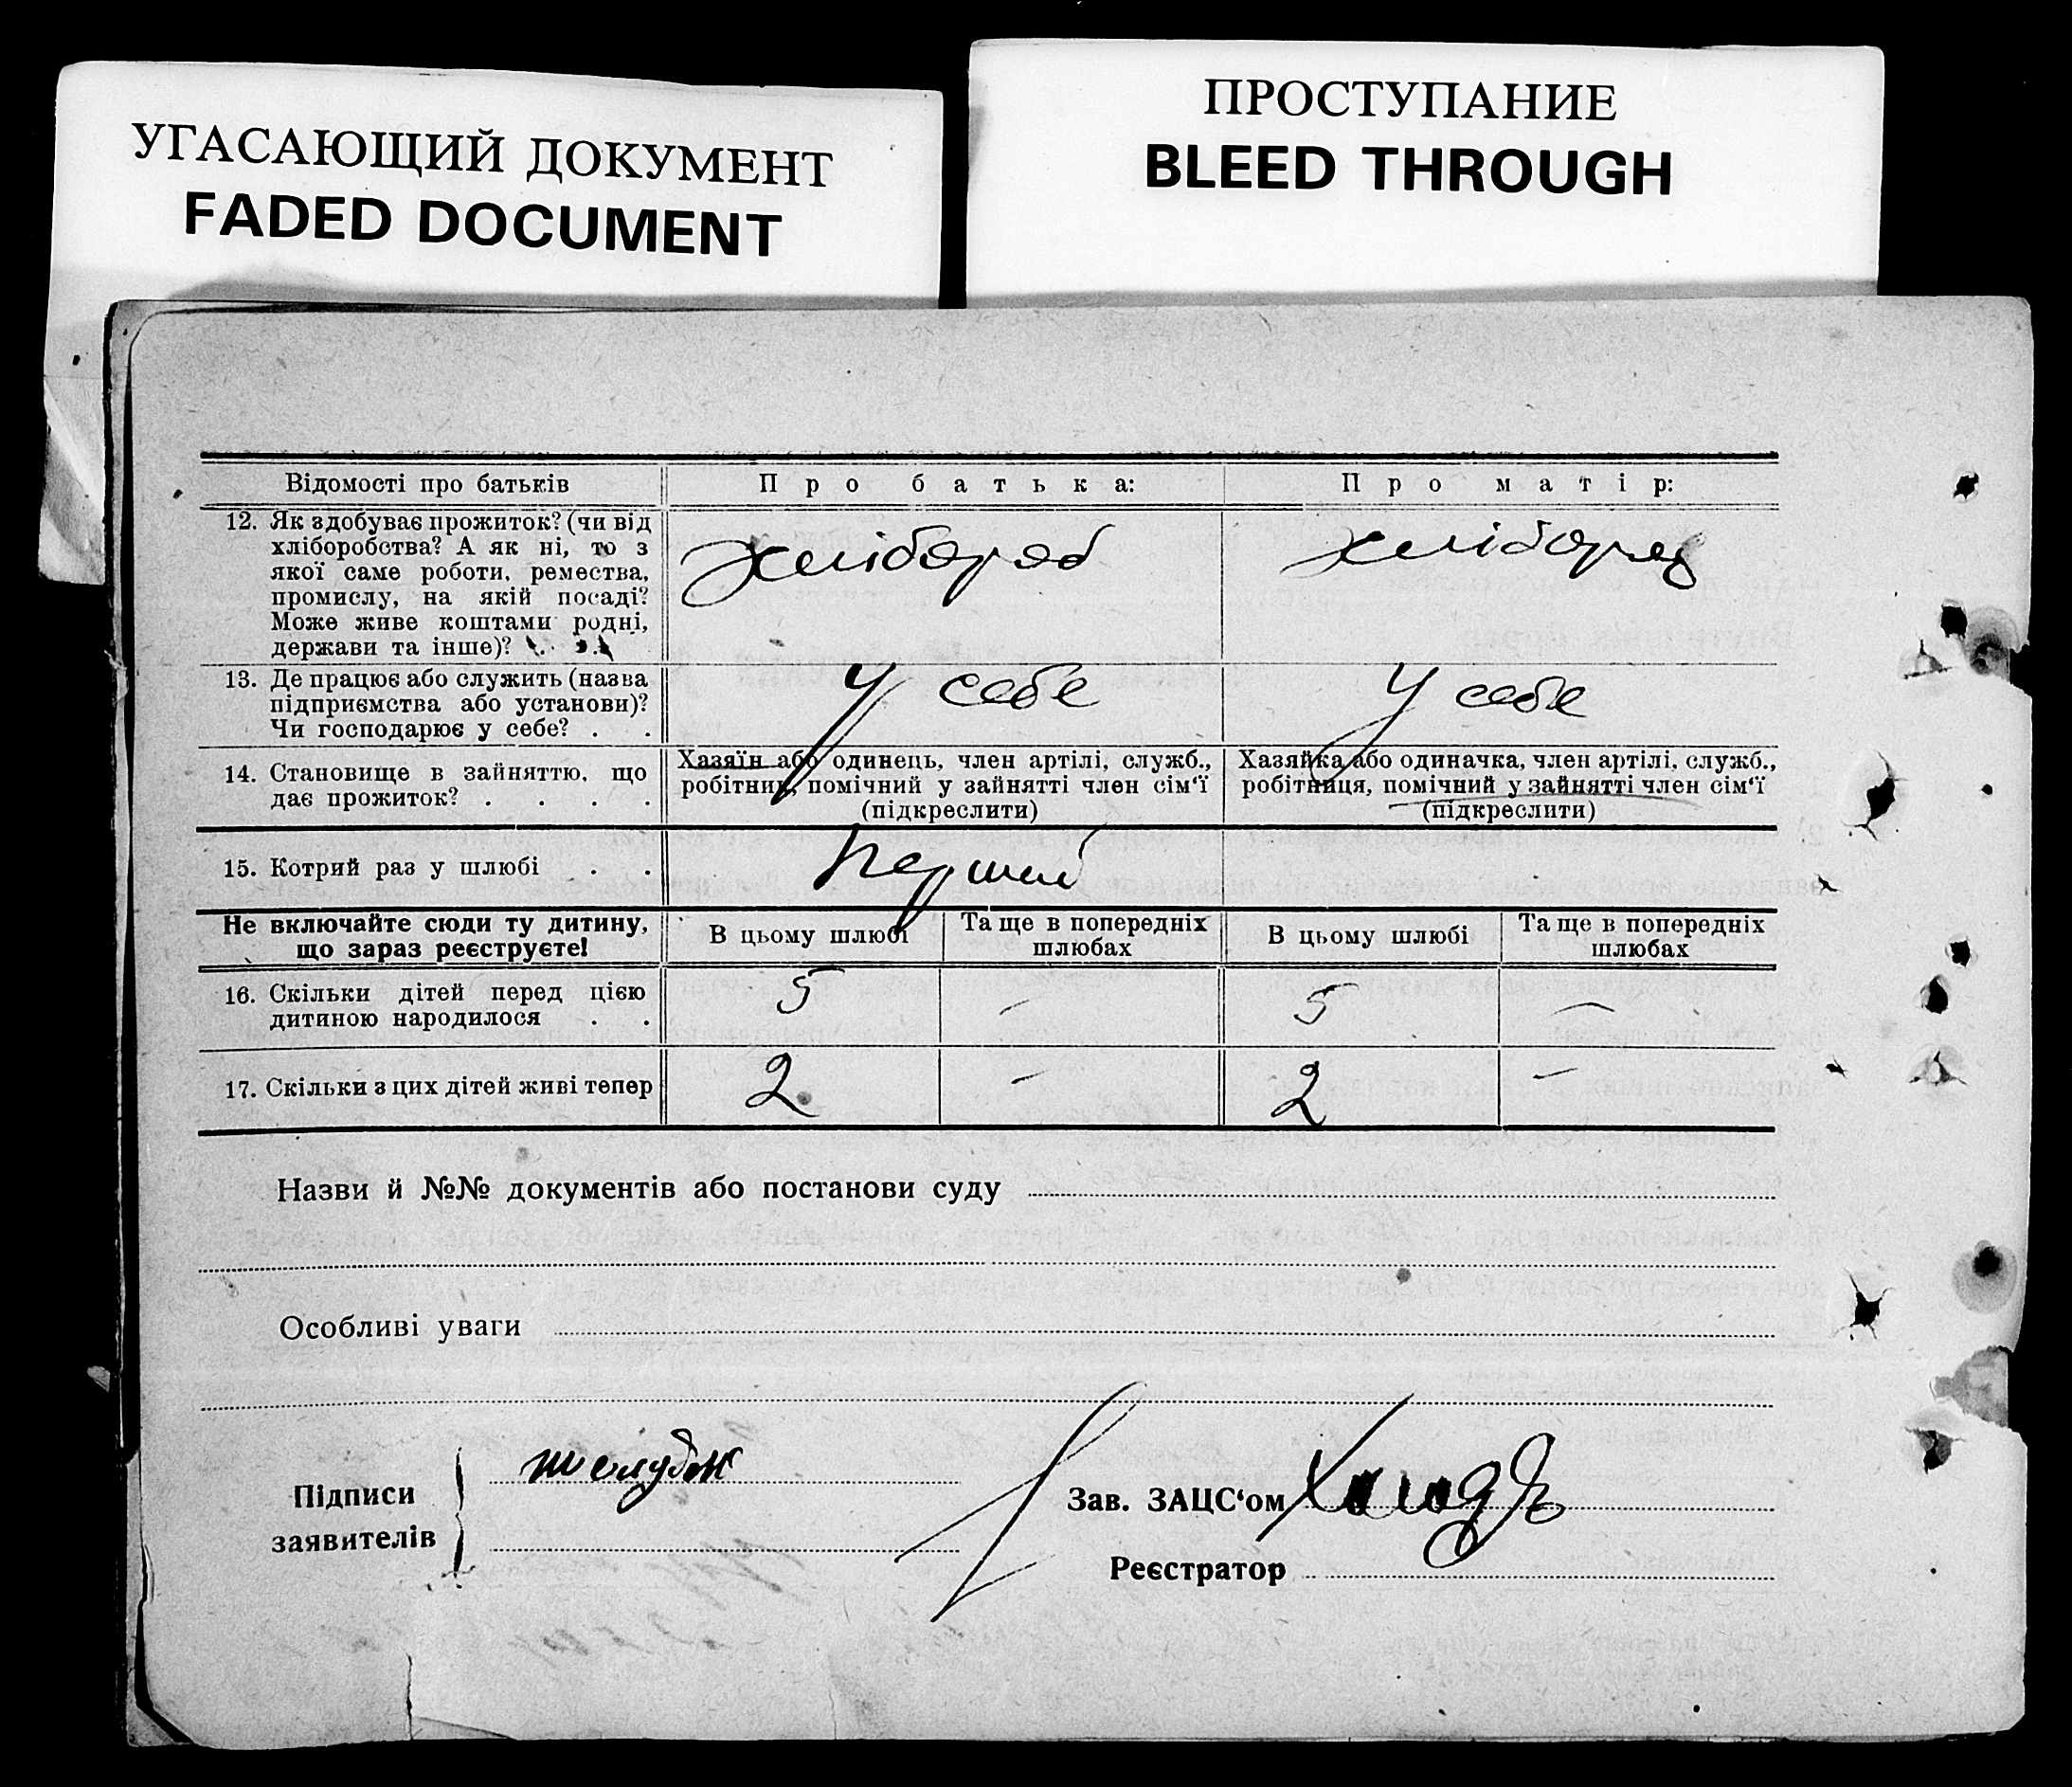 УГАСАЮЩИЙ ДОКУМЕНТ
FADED DOCUMENT
ПРОСТУПАНИЕ
BLEED THROUGH
Відомості про батьків
Про батька:
Про матір:
12. Як здобуває прожиток? (чи від
хліборобства? А як ні, то з
якої саме роботи, ремества,
промислу, на якій посаді?
Може живе коштами родні,
держави та інше)?
хлібороб
хлібороб
13. Де працює або служить (назва
підприємства або установи)?
Чи господарює у себе? . .
У себе
У себе
14. Становище в зайняттю, що
дає прожиток? . . . .
Хазяїн або одинець, член артілі, служб.,
робітник, помічний у зайнятті член сім‘ї
(підкреслити)
Хазяйка або одиначка, член артілі, служб.,
робітниця, помічний у зайнятті член сім‘ї
(підкреслити)
15. Котрий раз у шлюбі . .
Перший
Не включайте сюди ту дитину,
що зараз реєструєте!
В цьому шлюбі
Та ще в попередніх
шлюбах
В цьому шлюбі
Та ще в попередніх
шлюбах
16. Скільки дітей перед цією
дитиною народилося . .
5
–
5
–
17. Скільки з цих дітей живі тепер
2
–
2
–
Назви й №№ документів або постанови суду
Особливі уваги
Підписи
заявителів
Зав. ЗАЦС‘ом
Реєстратор